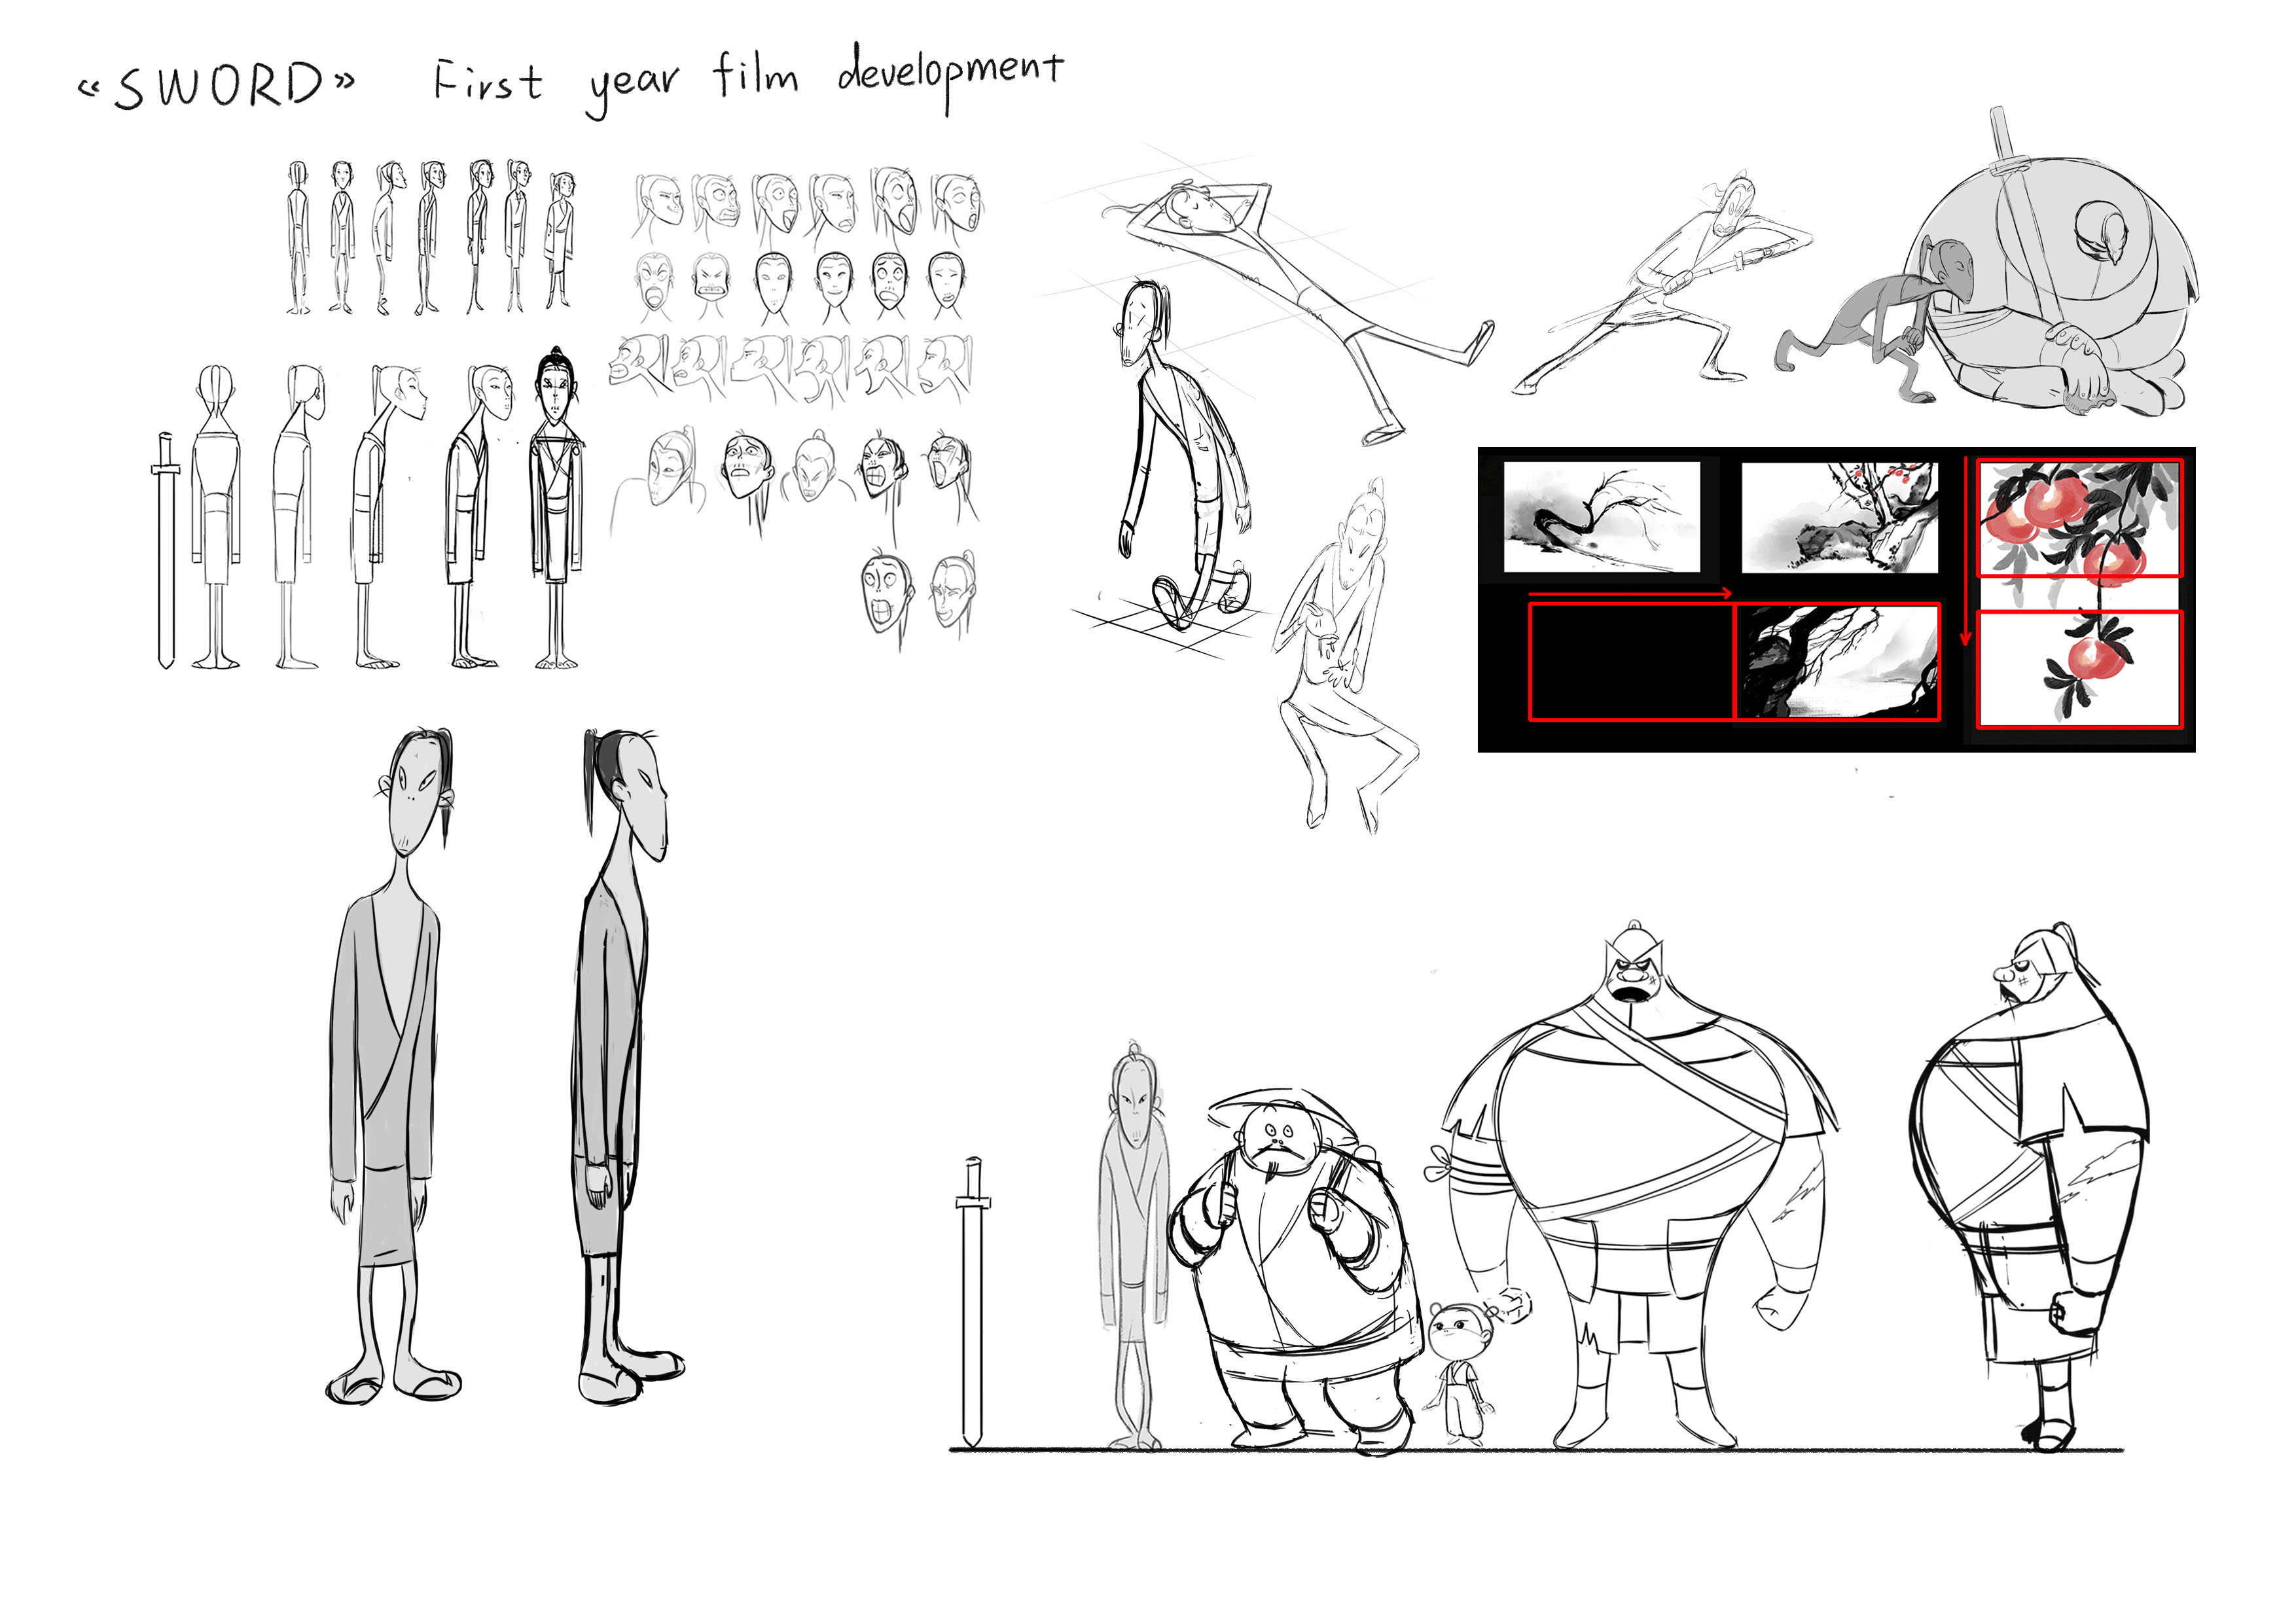 «SWORD» First year film development